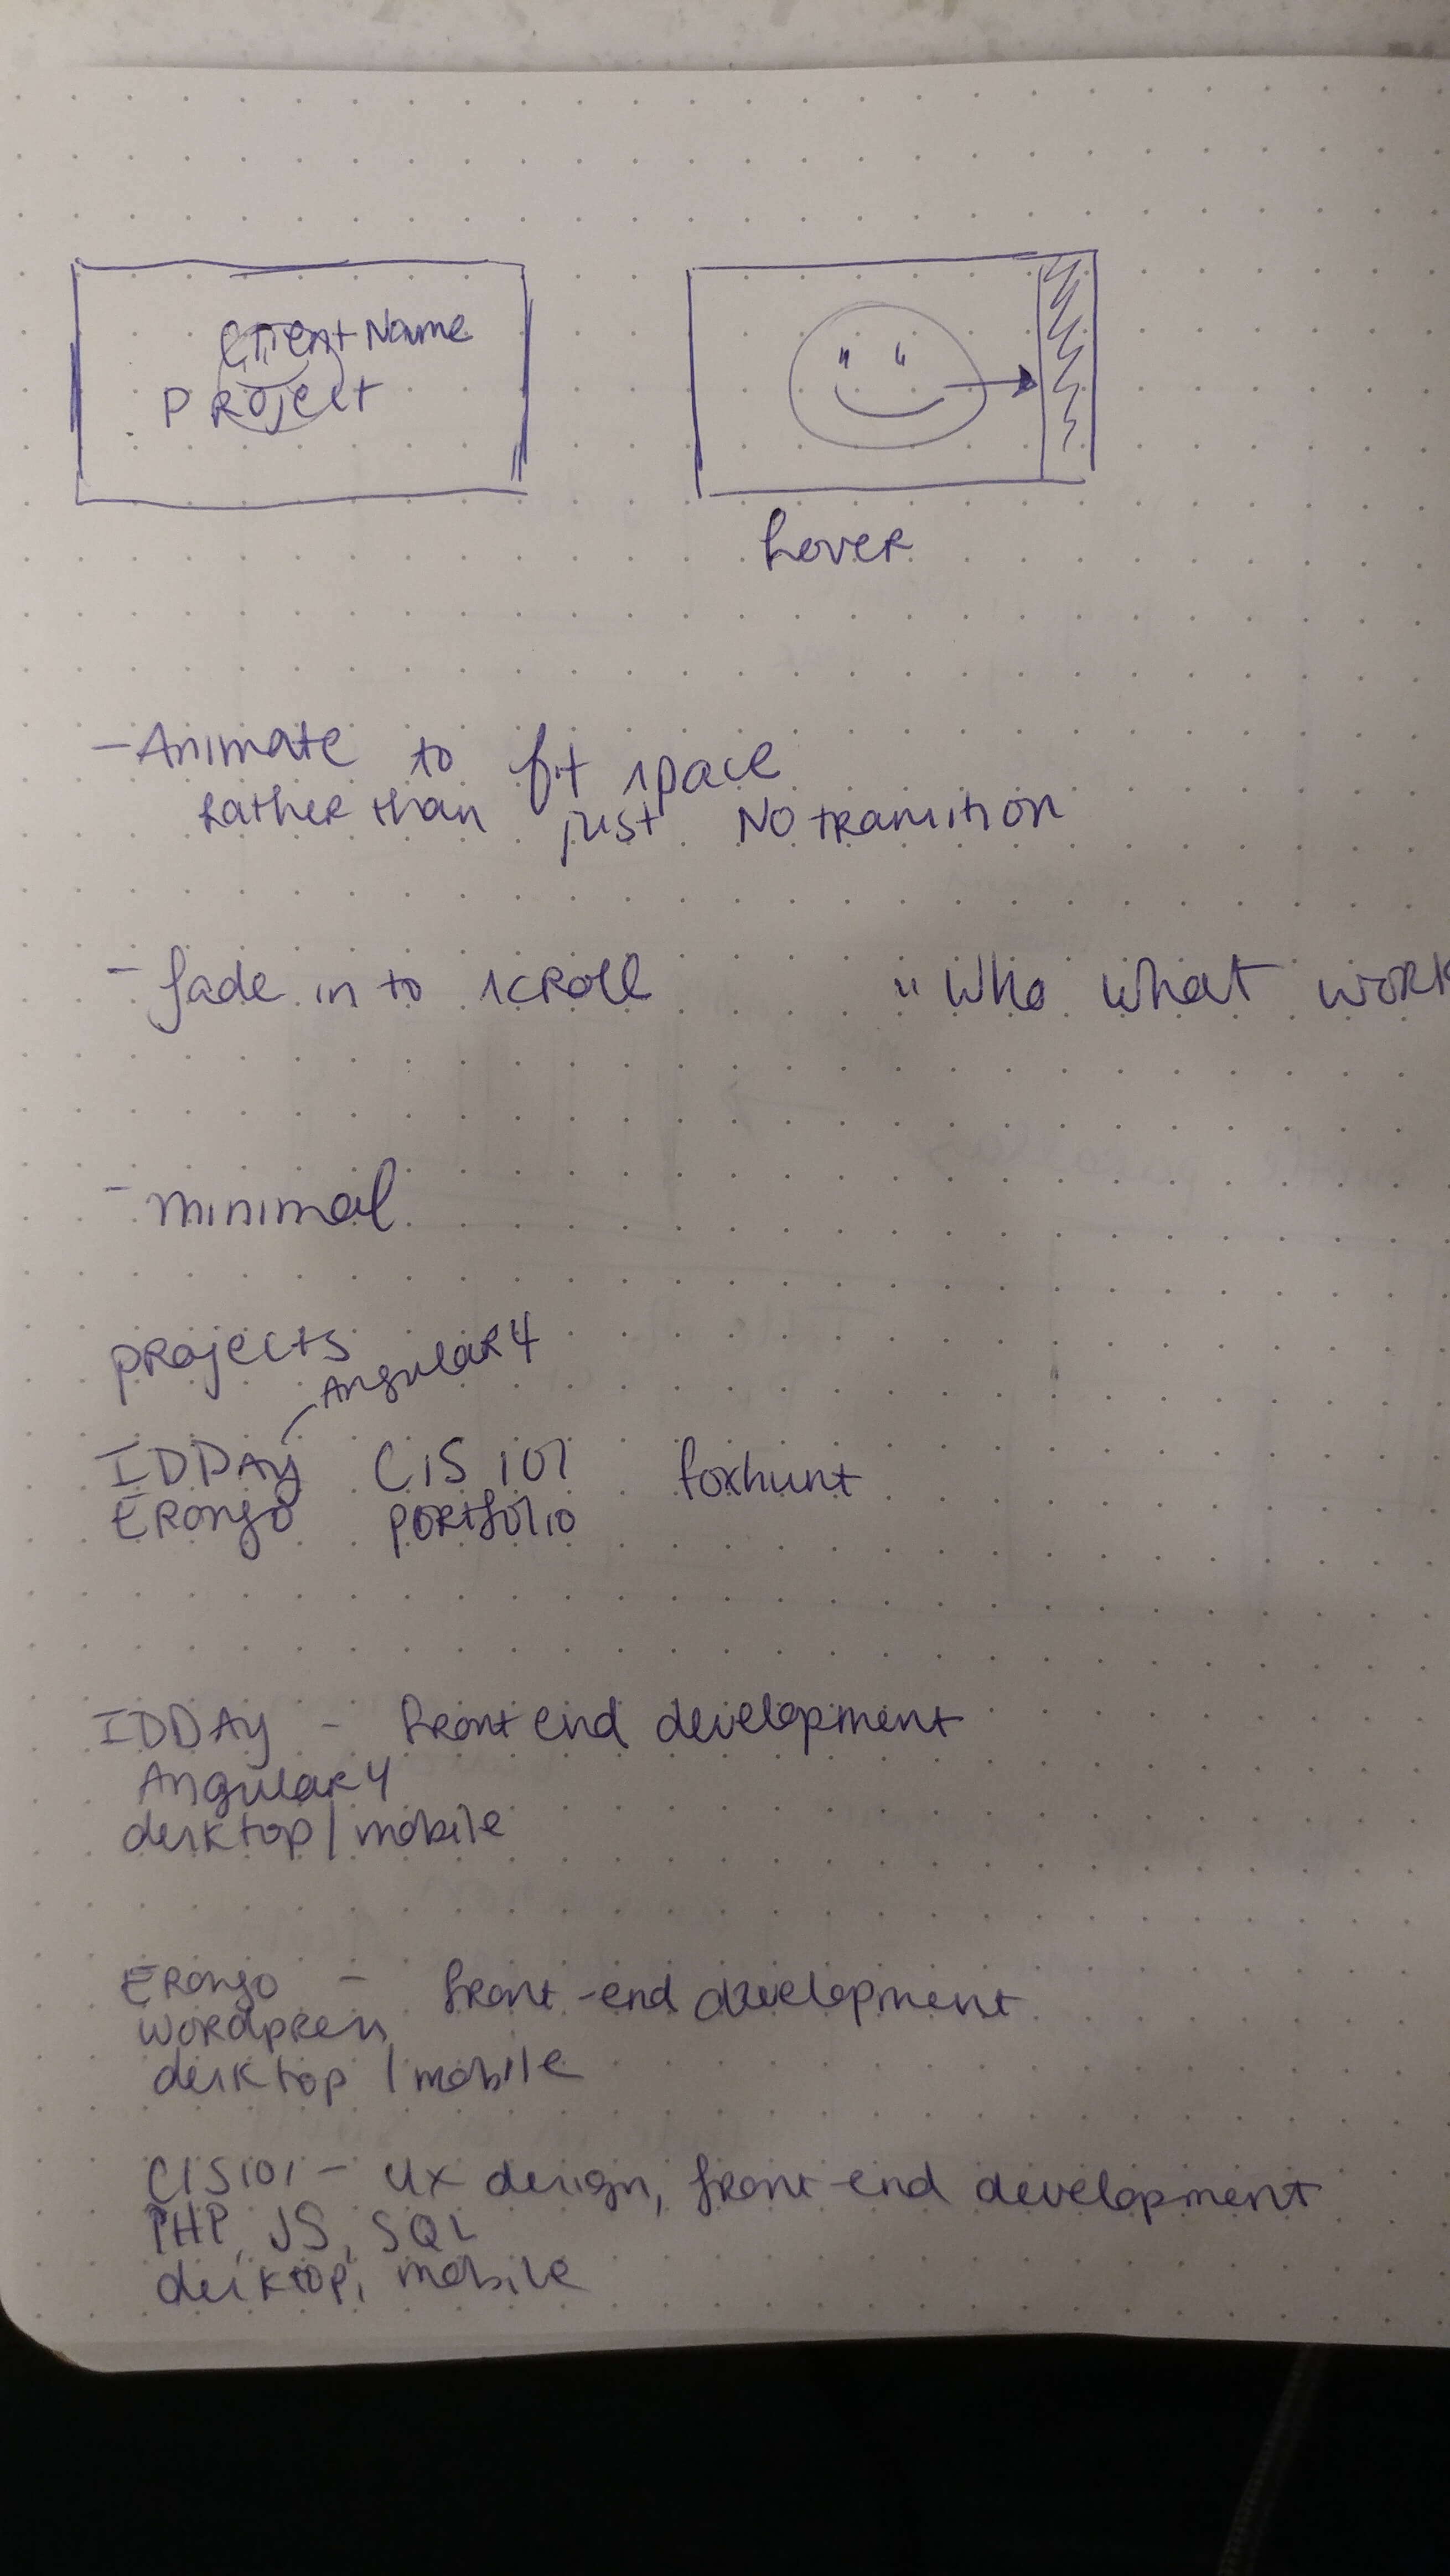 Client Name
Project
hover
- Animate to fit space
rather than just No transition
- fade in to scroll " Who what work
- minimal
projects
Angular 4
IDDAY CIS 101 foxhunt
ERongo portfolio
IDDAY - front end development
Angular 4
desktop / mobile
ERongo - front-end development
wordpress
desktop / mobile
CIS101 - UX design, front-end development
PHP, JS, SQL
desktop, mobile